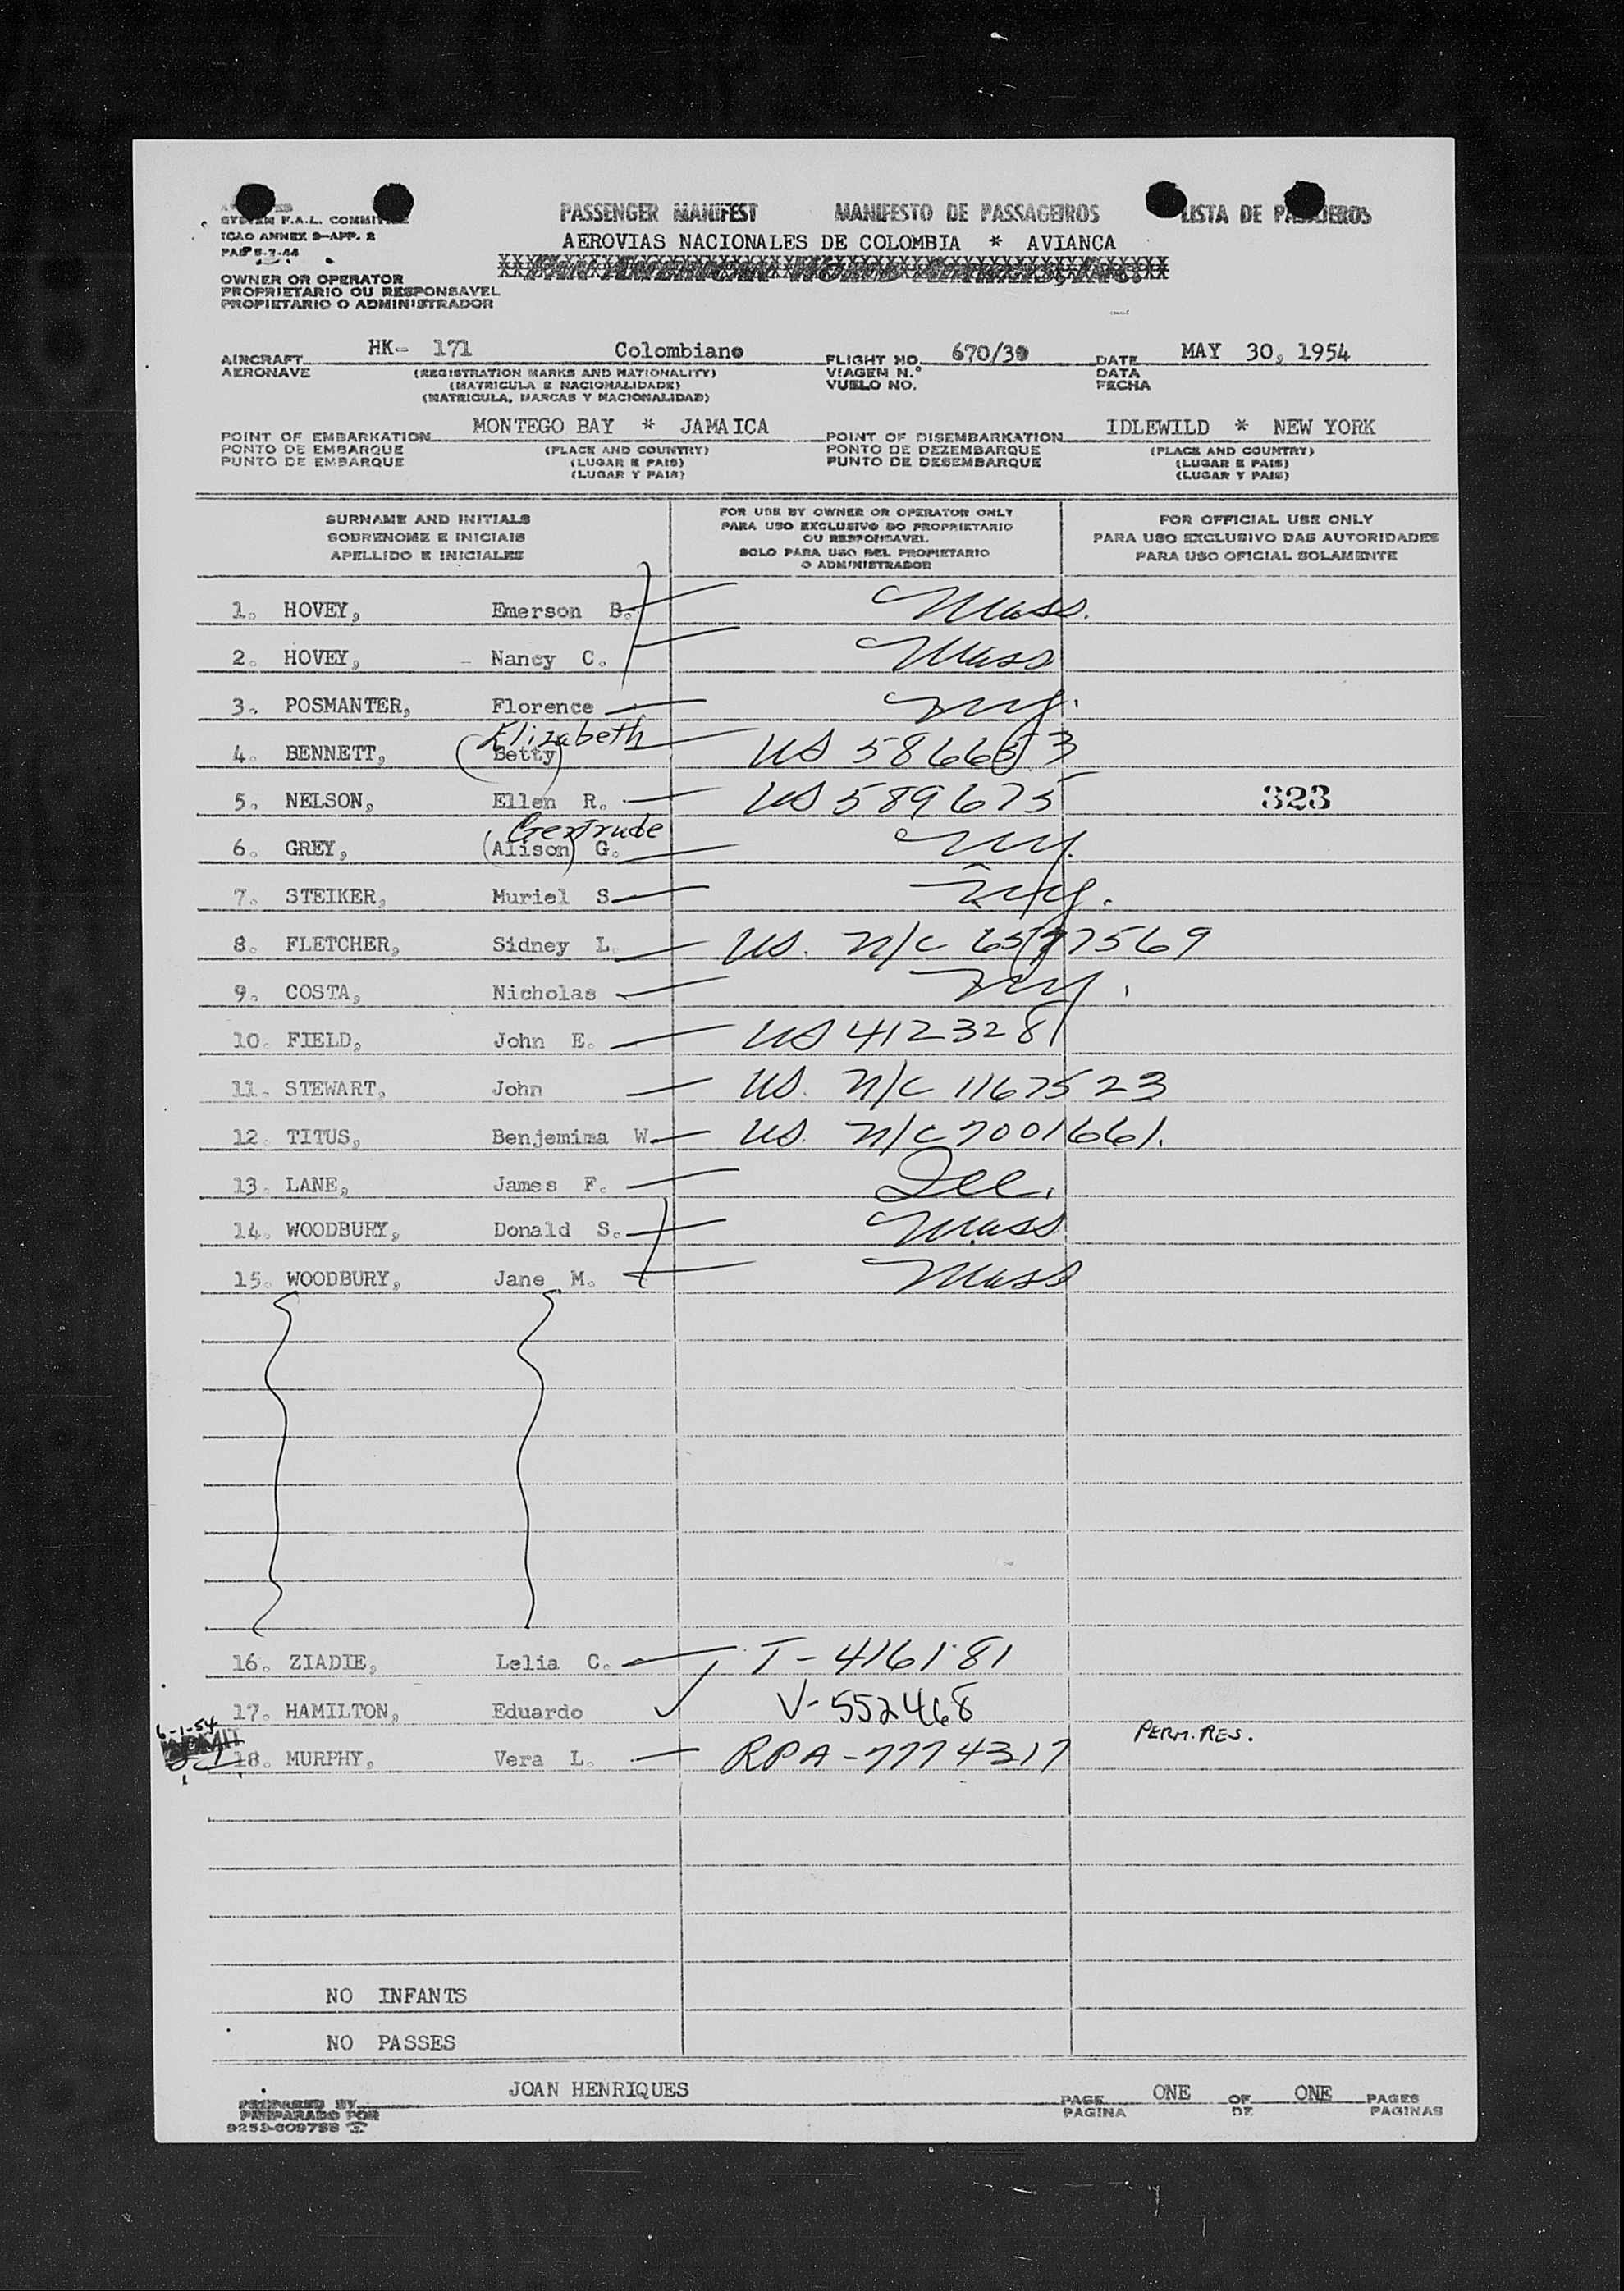 PASSENGER MANIFEST MANIFESTO DE PASSAGEIROS LISTA DE PASAJEROS
SYSTEM F.A.L. COMMITTEE
ICAO ANNEX 9-APP. 2
AEROVIAS NACIONALES DE COLOMBIA * AVIANCA
OWNER OR OPERATOR
PROPRIETARIO OU RESPONSAVEL
PROPIETARIO O ADMINISTRADOR
AIRCRAFT HK- 171 Colombiano FLIGHT NO. 670/30 DATE MAY 30, 1954
AERONAVE (REGISTRATION MARKS AND NATIONALITY) VIAGEM N.º DATA
(MATRICULA E NACIONALIDADE) VUELO NO. FECHA
(MATRICULA, MARCAS Y NACIONALIDAD)
POINT OF EMBARKATION MONTEGO BAY * JAMAICA POINT OF DISEMBARKATION IDLEWILD * NEW YORK
PONTO DE EMBARQUE (PLACE AND COUNTRY) PONTO DE DEZEMBARQUE (PLACE AND COUNTRY)
PUNTO DE EMBARQUE (LUGAR E PAIS) PUNTO DE DESEMBARQUE (LUGAR E PAIS)
(LUGAR Y PAIS) (LUGAR Y PAIS)
SURNAME AND INITIALS FOR USE BY OWNER OR OPERATOR ONLY FOR OFFICIAL USE ONLY
SOBRENOME E INICIAIS PARA USO EXCLUSIVO DO PROPRIETARIO PARA USO EXCLUSIVO DAS AUTORIDADES
OU RESPONSAVEL
APELLIDO E INICIALES SOLO PARA USO DEL PROPIETARIO PARA USO OFICIAL SOLAMENTE
O ADMINISTRADOR
1. HOVEY, Emerson B. Mass.
2. HOVEY, Nancy C. Mass
3. POSMANTER, Florence ny.
Elizabeth
4. BENNETT, (Betty) US 586653
5. NELSON, Ellen R. US 589675 323
Gertrude
6. GREY, (Alison) G. ny.
7. STEIKER, Muriel S. ny.
8. FLETCHER, Sidney L. US. n/c 6577569
9. COSTA, Nicholas ny.
10. FIELD, John E. US 412328
11. STEWART, John US. n/c 1167523
12. TITUS, Benjemima W. US. n/c 7001661.
13. LANE, James F.
14. WOODBURY, Donald S. Mass
15. WOODBURY, Jane M. Mass
16. ZIADIE, Lelia C. T-416181
17. HAMILTON, Eduardo V-552468
6-1-54
18. MURPHY, Vera L. RPA-7774317 PERM. RES.
NO INFANTS
NO PASSES
PREPARED BY JOAN HENRIQUES PAGE ONE OF ONE PAGES
PREPARADO POR PAGINA DE PAGINAS